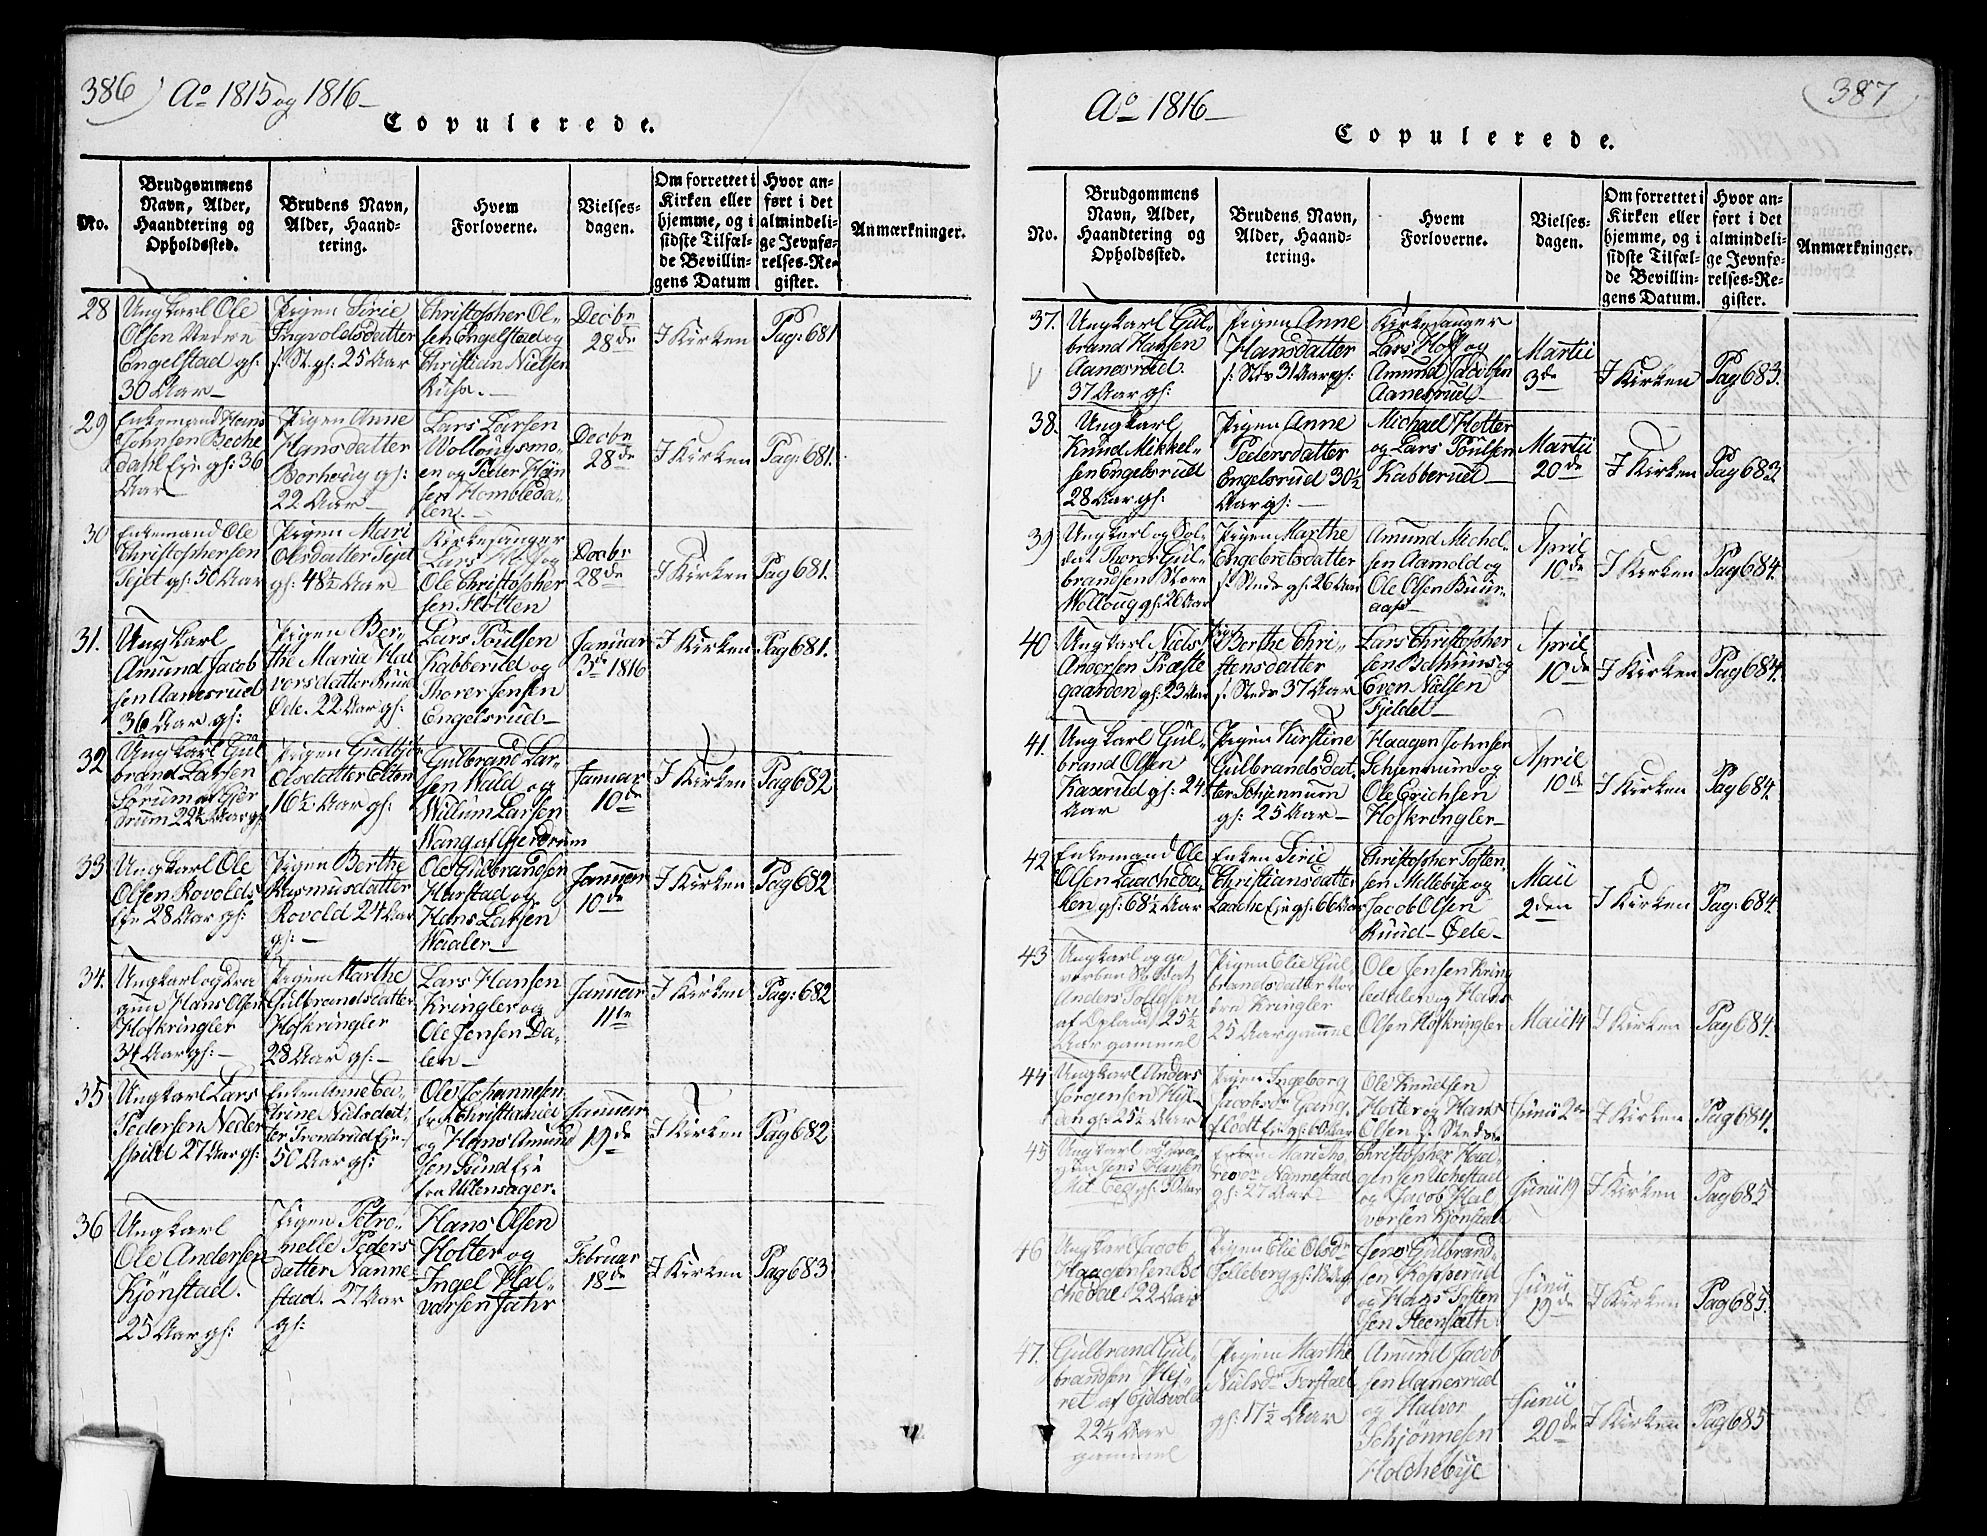 386) Ao 1815 og 1816
Copulerede.
No.
Brudgommens
Navn, Alder,
Haandtering og
Opholdssted.
Brudens Navn,
Alder, Haand-
tering.
Hvem
Forloverne.
Vielses-
dagen.
Om forrettet i
Kirken eller
hjemme, og i
sidste Tilfæl-
de Bevillin-
gens Datum
Hvor an-
ført i det
almindeli-
ge Jevnfø-
relses-Re-
gister.
Anmærkninger.
28
Ungkarl Ole
Olsen Nedre
Engelstad gl:
30 Aar
Pigen Sirie
Ingvoldsdatter
s. St. gl: 25 Aar
Christopher Ol-
sen Engelstad og
Christian Nielsen
Decbr
28de
I Kirken
Pag: 681
29
Enkemand Hans
Johnsen Beche
dahl Eje gl: 36
Aar
Pigen Anne
Hansdatter
gl:
22 Aar
Lars Larsen
Wollougsmo-
en og Peder Han
sen Hombleda-
len.
Decbr
28de
I Kirken
Pag: 681.
30
Enkemand Ole
Christophersen
Sejet gl: 50 Aar
Pigen Mari
Olsdatter Sejet
gl: 48½ Aar
Kirkesanger
Lars Hoff og
Ole Christopher
sen Holten
Decbr
28de
I Kirken
Pag 681.
31.
Ungkarl
Amund Jacob
sen Aanesrud
36 Aar gl:
Pigen Ber-
the Maria Hal
vorsdatter Ruud
Øde. 22 Aar gl:
Lars Poulsen
Kabberud og
Thorer Jensen
Engelsrud
Januar
3de 1816
I Kirken
Pag 681.
32
Ungkarl Gul
brand Larsen
Sørum af Gjer
drum 22½ Aar gl:
Pigen
Olsdatter Elten
16½ Aar gl:
Gulbrand Lar-
sen Wald og
Willum Larsen
Wang af Gjerdrum
Januar
10de
I Kirken
Pag 682
33
Ungkarl Ole
Olsen Rovolds
Eje 28 Aar gl:
Pigen Berthe
Rasmusdatter
Rovold 24 Aar
gl:
Ole Gulbrandsen
Harstad og
Hans Larsen
Waaler
Januar
10de
I Kirken
Pag 682
34.
Ungkarl og Dra
gun Hans Olsen
Hofkringler
34 Aar gl:
Pigen Marthe
Gulbrandsdatter
Hofkringler
28 Aar gl:
Lars Hansen
Kringler og
Ole Jensen Da-
len
Januar
11te
I Kirken
Pag: 682
35
Ungkarl Lars
Pedersen Neder
27 Aar gl:
Enken Anne Ca-
trine Nielsdat-
ter Trondrud Eje
50 Aar gl:
Ole Johannesen
fra Christiania
og Hans Amund
sen Sund Eje
fra Ullensager.
Januar
19de
I Kirken
Pag 682
36
Ungkarl
Ole Andersen
Kjønstad.
25 Aar gl:
Pigen Petro-
nelle Peders
datter Nanne
stad. 27 Aar
gl:
Hans Olsen
Holter og
Ingel Hal-
vorsen Jahr
Februar
18de
I Kirken
Pag 683
Ao 1816
387
Copulerede.
No.
Brudgommens
Navn, Alder,
Haandtering og
Opholdssted.
Brudens Navn,
Alder, Haand-
tering.
Hvem
Forloverne.
Vielses-
dagen.
Om forrettet i
Kirken eller
hjemme, og i
sidste Tilfæl-
de Bevillin-
gens Datum.
Hvor an-
ført i det
almindeli-
ge Jevnfø-
relses-Re-
gister.
Anmærkninger.
37.
Ungkarl Gul-
brand Hansen
Aanesrud.
37 Aar gl:
Pigen Anne
Hansdatter
s: Stds 31 Aar gl:
Kirkesanger
Lars Hoff og
Amund Jacobsen
Aanesrud
Martii
3de
I Kirken
Pag 683.
38.
Ungkarl
Knud Mikkel-
sen Engelsrud
28 Aar gl:
Pigen Anne
Pedersdatter
Engelsrud 30½
Aar gl:
Michael Holter
og Lars Poulsen
Kabberud
Martii
20de
I Kirken
Pag 683
39
Ungkarl og Sol-
dat Thorer Gul-
brandsen Store
Wolloug gl: 26 Aar
Pigen Marthe
Engebretsdatter
s: Steds gl: 26 Aar
Amund Michel-
sen Aamold og
Ole Olsen Buur-
aas
April
10de
I Kirken
Pag 684.
40
Ungkarl Niels
Andersen Præste
gaarden gl: 23 Aar
Pigen Berthe Chri-
stensdatter
s. Steds 37 Aar
Lars Christopher
sen og
Even Nielsen
Fjeldet
April
10de
I Kirken
Pag 684.
41.
Ungkarl Gul-
brand Olsen
Kaxerud gl: 24
Aar
Pigen Kirstine
Gulbrandsdat-
ter Schjennum
gl: 25 Aar
Haagen Johnsen
Schjennum og
Ole Erichsen
Hofkringler
April
10de
I Kirken
Pag 684.
42
Enkemand Ole
Olsen Laacheda-
len gl: 68½ Aar
Enken Sirie
Christiansdatter
Laache Eje gl: 66 Aar
Christopher Tosten-
sen Millebye og
Jacob Olsen
Ruud-Øde
Maii
2den
I Kirken
Pag: 684.
43
Ungkarl og ge
vorben Soldat
Anders
af Opland 25½
Aar gammel
Pigen Elie Gul-
brandsdatter Nor
dre Kringler
25 Aar gammel
Ole Jensen Kring
leddalen og Hans
Olsen Hofkringler
Maii 14
I Kirken
Pag 684.
44
Ungkarl Anders
Jørgensen
gl: 25½ Aar
Pigen Ingeborg
Jacobsdr Gang-
flodt Eje gl: 60 Aar
Ole Knudsen
Holter og Hans
Olsen s. Steds
Junii 2den
I Kirken
Pag 684.
45
Ungkarl og Dra
gun Jens Hansen
gl: 30 Aar
Enken Marie
Nannestad
gl: 27 Aar
Christopher Haa-
gensen Uchestad
og Jacob Hal
vorsen Kjønstad
Junii 19
I Kirken
Pag 685
46
Ungkarl Jacob
Haagensen Be
chedal 22 Aar
Pigen Elie Olsdr
Solleberg gl: 18 Aar
Jens Gulbrand-
sen Kopperud
og Hans Tosten
sen Steensæth
Junii
19de
I Kirken
Pag 685.
47.
Gulbrand Gul-
brandsen
af Eidsvold
22¼ Aar
gammel
Pigen Marthe
Nielsdr
gl: 17½ Aar
Amund Jacob
sen Aanesrud
og Halvor
Schjønnesen
Holchebye
Junii
20de
I Kirken
Pag 685